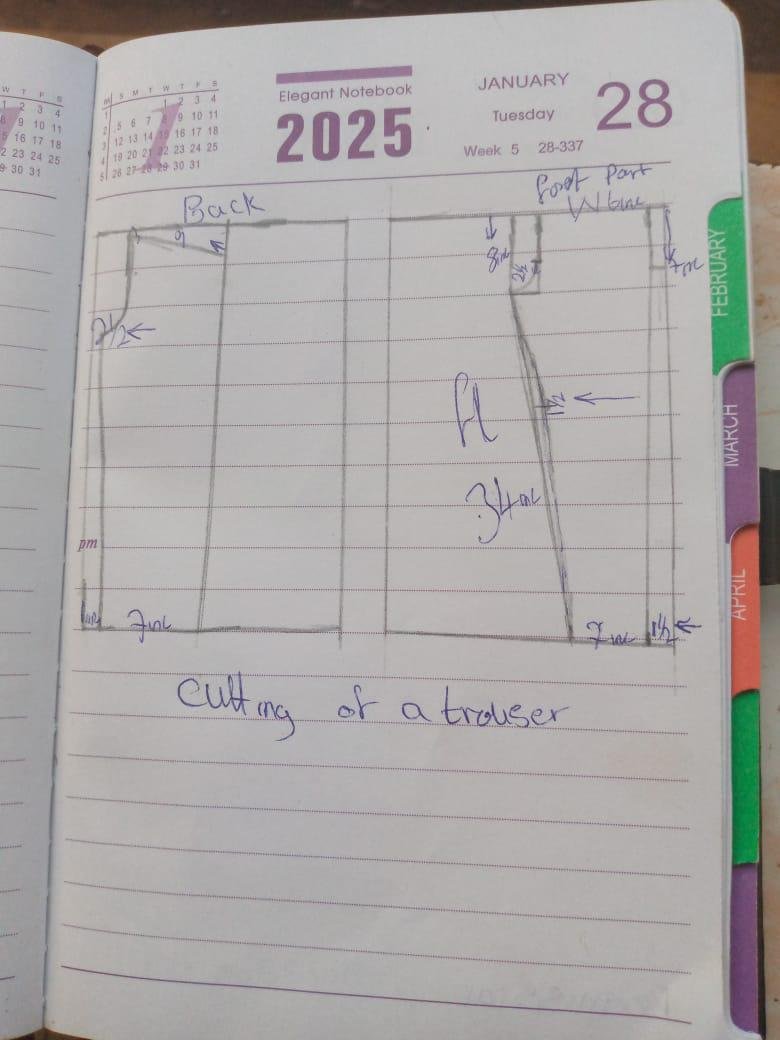 W T F S
1 2 3 4
8 9 10 11
15 16 17 18
22 23 24 25
29 30 31
M S M T W T F S
1 1 2 3 4
2 5 6 7 8 9 10 11
3 12 13 14 15 16 17 18
4 19 20 21 22 23 24 25
5 26 27 28 29 30 31
Elegant Notebook
2025
JANUARY
Tuesday
28
Week 5 28-337
Back
Front Part
W 6inc
9
8inc
2½
7inc
2½
1½
fl
34inc
pm
7inc
7inc
1½
Cutting of a trouser
FEBRUARY
MARCH
APRIL